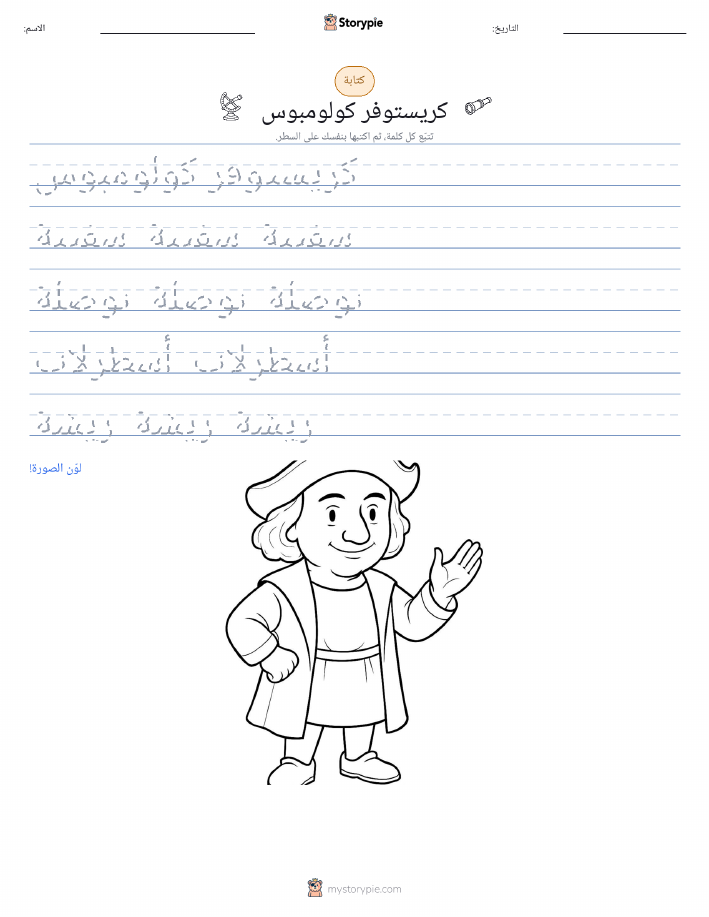 الاسم:
Storypie
التاريخ:
كتابة
كريستوفر كولومبوس
تتبّع كل كلمة، ثم اكتبها بنفسك على السطر.
كريستوفر كولومبوس
سفينة سفينة سفينة
بوصلة بوصلة بوصلة
أسطرلاب أسطرلاب
لوّن الصورة!
mystorypie.com